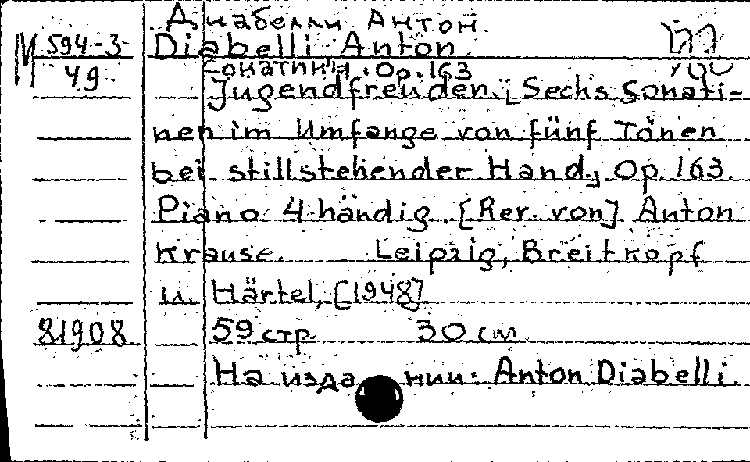 Диабелли Антон.
М 594-3 Diabelli Anton
49 Сонатины. Op. 163
Jugendfreuden. [Sechs Sonati-
nen im Umfange von fünf Tönen
bei stillstehender Hand, Op. 163.
Piano 4-händig. [Rer. von] Anton
Krause. Leipzig, Breitkopf
u. Härtel, [1948]
81908 59 стр. 30 см.
На издании: Anton Diabelli.